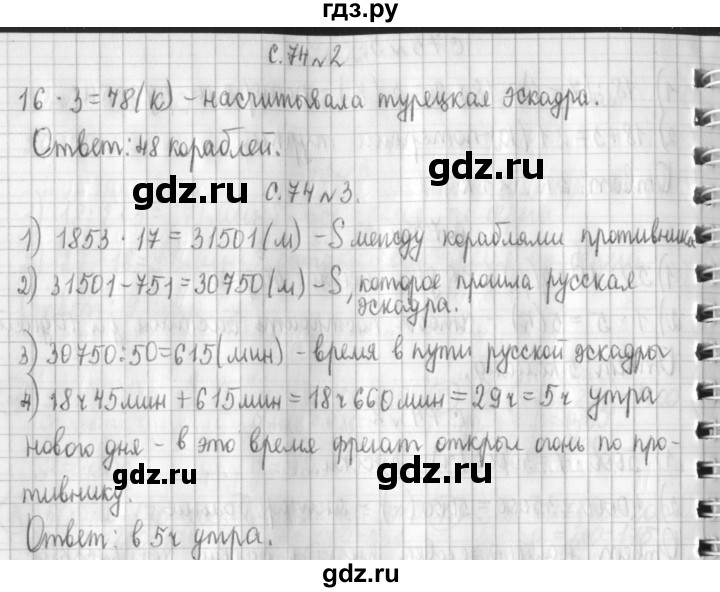 гдз.ру
с.74 №2
16 · 3 = 48 (к) - насчитывала турецкая эскадра.
Ответ: 48 кораблей.
gdz.ru gdz.ru
с.74 №3.
1) 1853 · 17 = 31501 (м) - S между кораблями противника
2) 31501 - 751 = 30750 (м) - S, которое прошла русская
эскадра.
3) 30750 : 50 = 615 (мин) - время в пути русской эскадры
4) 18ч 45мин + 615мин = 18ч 660мин = 29ч = 5ч утра
нового дня - в это время фрегат открыл огонь по про-
gdz.ru gdz.ru
тивнику.
Ответ: в 5ч утра.
gdz.ru